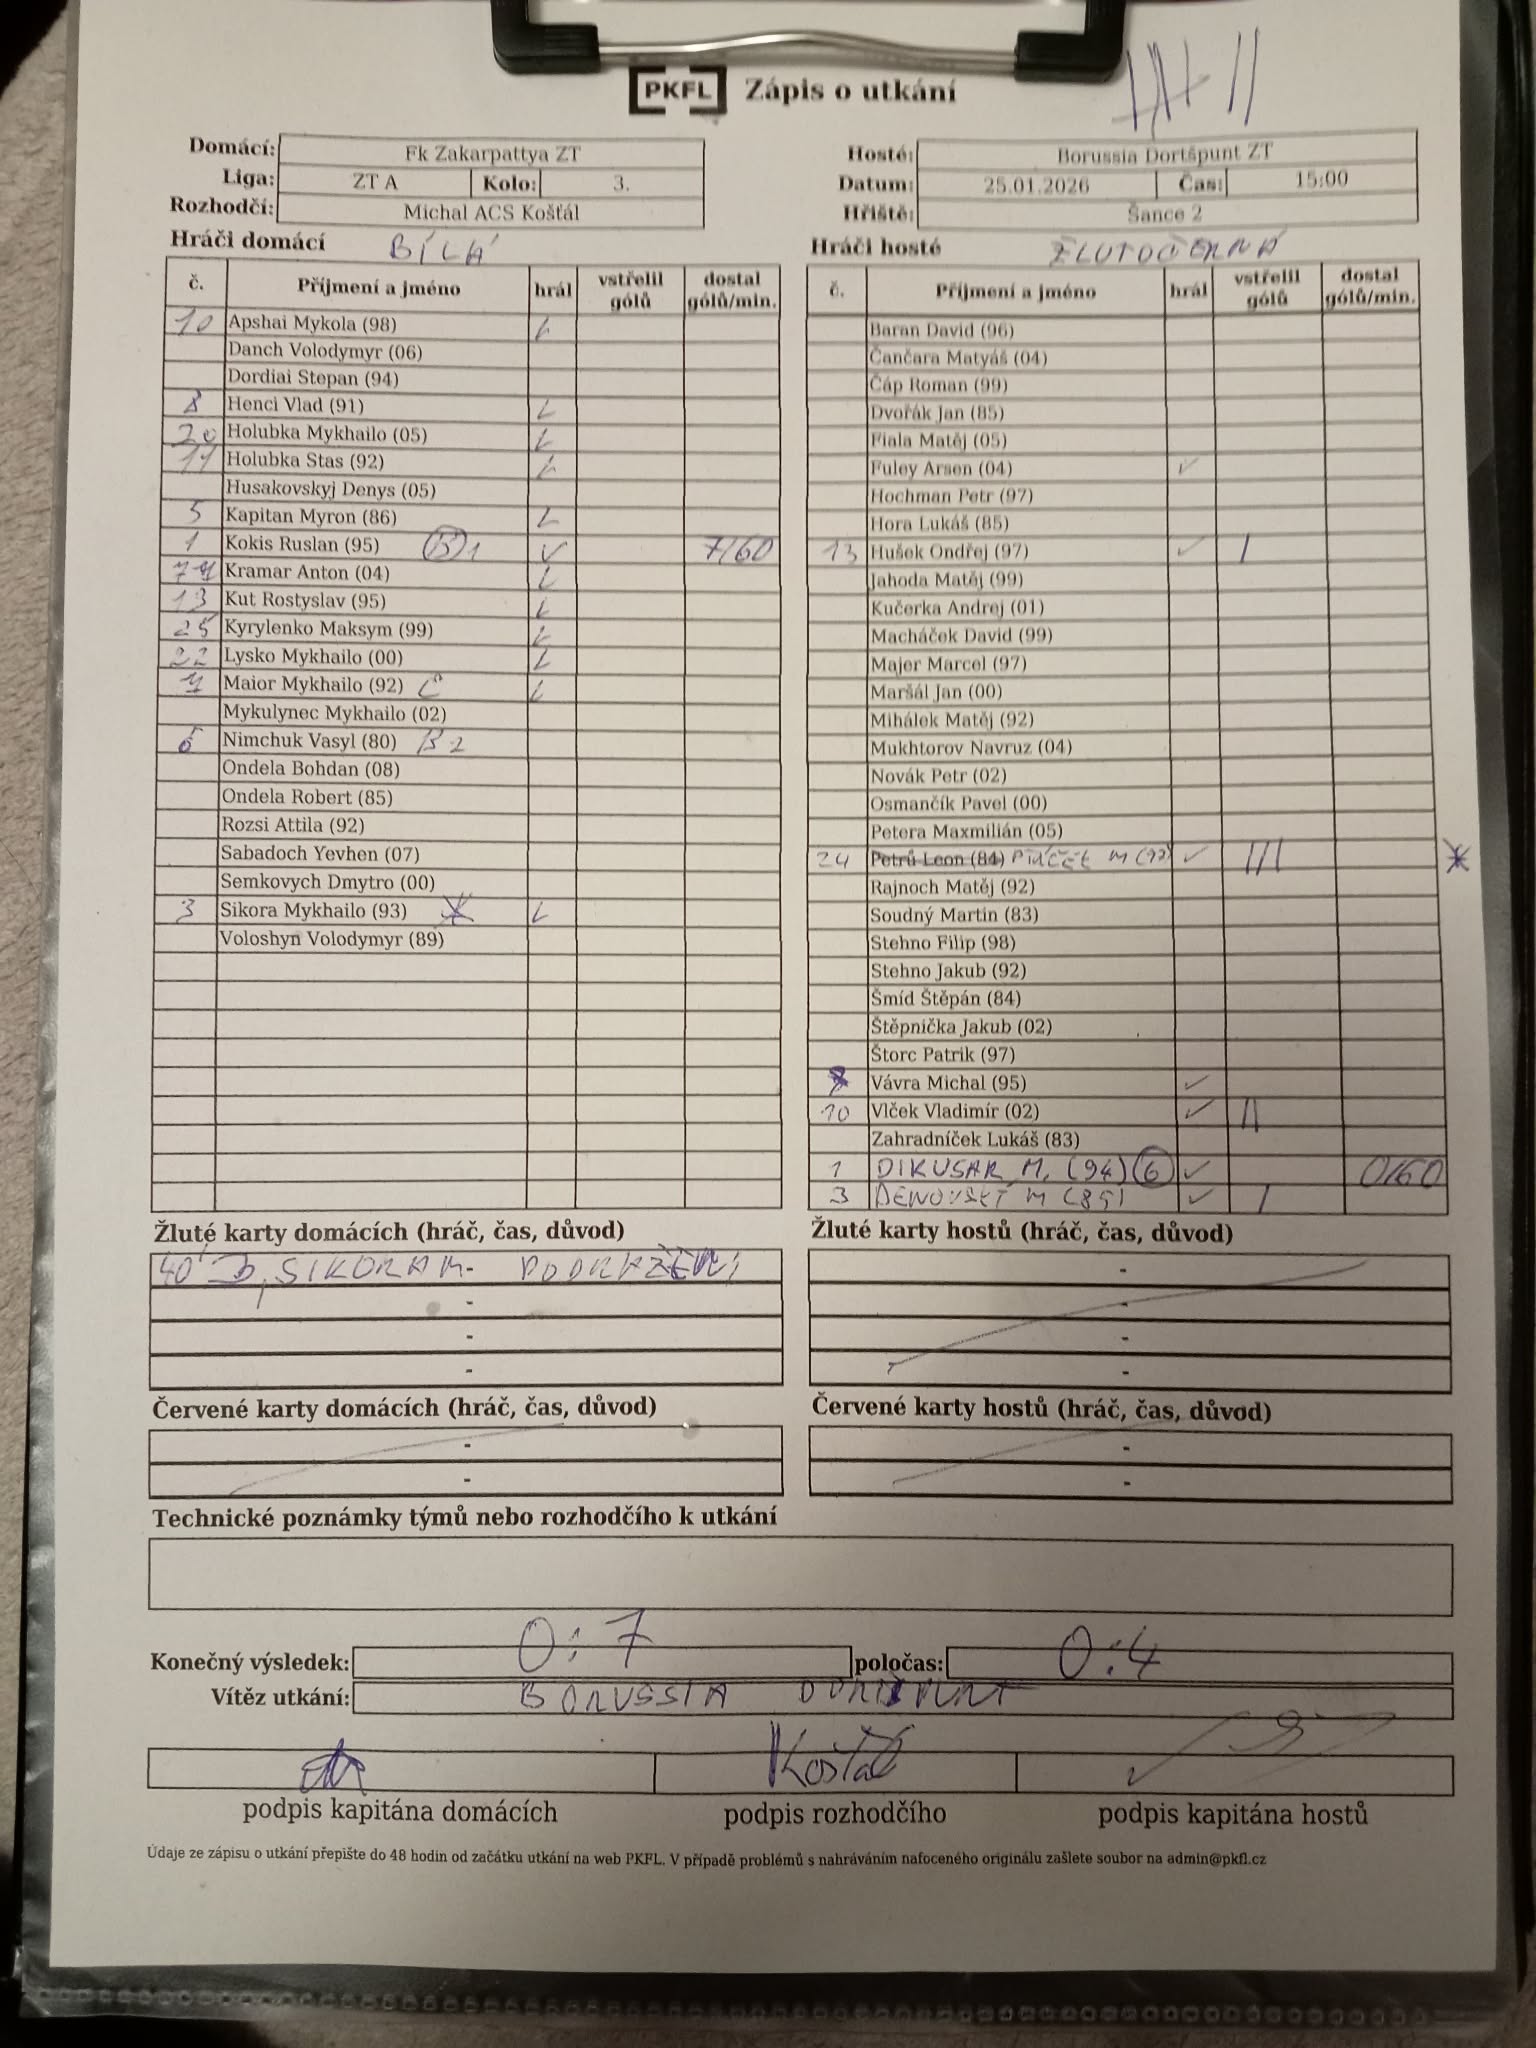 PKFL Zápis o utkání
Domácí: Fk Zakarpattya ZT
Liga: ZT A Kolo: 3.
Rozhodčí: Michal ACS Košťál
Hosté: Borussia Dortšpunt ZT
Datum: 25.01.2026 Čas: 15:00
Hřiště: Šance 2
Hráči domácí BÍLÁ
č. Příjmení a jméno hrál vstřelil gólů dostal gólů/min.
10 Apshai Mykola (98)
Danch Volodymyr (06)
Dordiai Stepan (94)
8 Henci Vlad (91)
20 Holubka Mykhailo (05)
Holubka Stas (92)
Husakovskyj Denys (05)
5 Kapitan Myron (86)
1 Kokis Ruslan (95) B 1 7/60
Kramar Anton (04)
13 Kut Rostyslav (95)
25 Kyrylenko Maksym (99)
22 Lysko Mykhailo (00)
Maior Mykhailo (92) C
Mykulynec Mykhailo (02)
6 Nimchuk Vasyl (80) B 2
Ondela Bohdan (08)
Ondela Robert (85)
Rozsi Attila (92)
Sabadoch Yevhen (07)
Semkovych Dmytro (00)
3 Sikora Mykhailo (93)
Voloshyn Volodymyr (89)
Hráči hosté ŽLUTOČERNÁ
č. Příjmení a jméno hrál vstřelil gólů dostal gólů/min.
Baran David (96)
Čančara Matyáš (04)
Čáp Roman (99)
Dvořák Jan (85)
Fiala Matěj (05)
Fuley Arsen (04)
Hochman Petr (97)
Hora Lukáš (85)
13 Hušek Ondřej (97) I
Jahoda Matěj (99)
Kučerka Andrej (01)
Macháček David (99)
Majer Marcel (97)
Maršál Jan (00)
Mihálek Matěj (92)
Mukhtorov Navruz (04)
Novák Petr (02)
Osmančík Pavel (00)
Petera Maxmilián (05)
24 Petrů Leon (84) PTÁČEK M (97) III
Rajnoch Matěj (92)
Soudný Martin (83)
Stehno Filip (98)
Stehno Jakub (92)
Šmíd Štěpán (84)
Štěpnička Jakub (02)
Štorc Patrik (97)
Vávra Michal (95)
10 Vlček Vladimír (02) II
Zahradníček Lukáš (83)
1 DIKUSAR M. (94) 0/60
3 M (89) I
Žluté karty domácích (hráč, čas, důvod)
40' SIKORA M - PODRAŽENÍ
-
-
-
Žluté karty hostů (hráč, čas, důvod)
-
-
-
-
Červené karty domácích (hráč, čas, důvod)
-
-
Červené karty hostů (hráč, čas, důvod)
-
-
Technické poznámky týmů nebo rozhodčího k utkání
Konečný výsledek: 0:7 poločas: 0:4
Vítěz utkání: BORUSSIA DORTŠPUNT
Košťál
podpis kapitána domácích podpis rozhodčího podpis kapitána hostů
Údaje ze zápisu o utkání přepište do 48 hodin od začátku utkání na web PKFL. V případě problémů s nahráváním nafoceného originálu zašlete soubor na admin@pkfl.cz